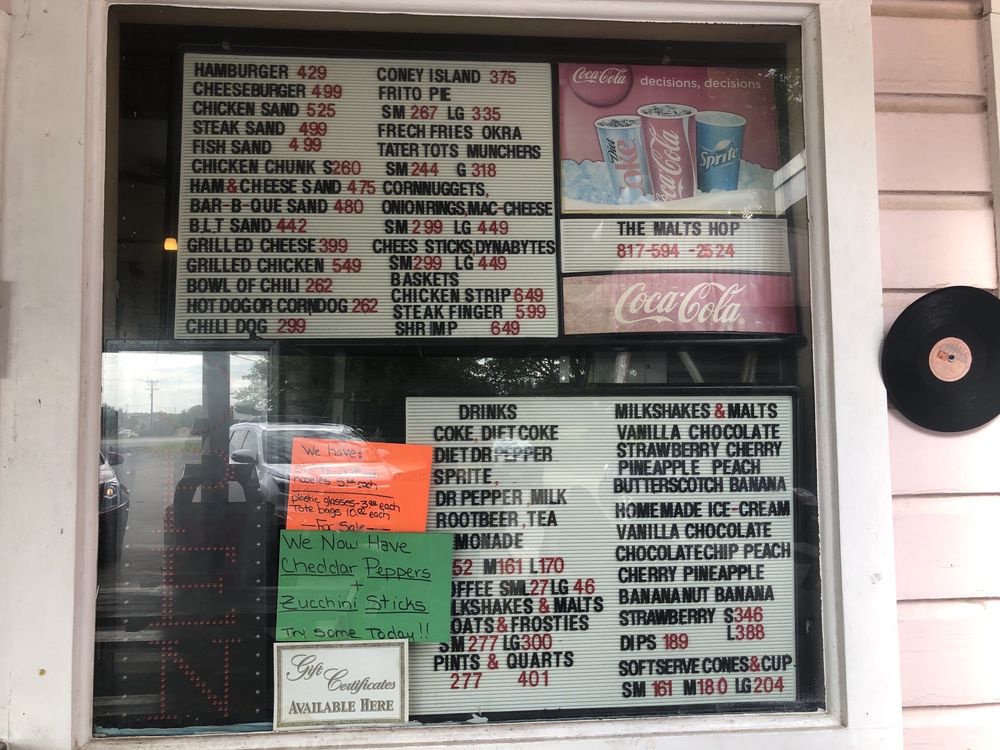 HAMBURGER 429
CHEESEBURGER 499
CHICKEN SAND 525
STEAK SAND 499
FISH SAND 499
CHICKEN CHUNK S260
HAM & CHEESE SAND 475
BAR-B-QUE SAND 480
B.L.T SAND 442
GRILLED CHEESE 399
GRILLED CHICKEN 549
BOWL OF CHILI 262
HOT DOG OR CORNDOG 262
CHILI DOG 299
CONEY ISLAND 375
FRITO PIE
SM 267 LG 335
FRECH FRIES OKRA
TATER TOTS MUNCHERS
SM 244 G 318
CORNNUGGETS,
ONIONRINGS,MAC-CHEESE
SM 299 LG 449
CHEES STICKS,DYNABYTES
SM299 LG 449
BASKETS
CHICKEN STRIP 649
STEAK FINGER 599
SHRIMP 649
Coca-Cola decisions, decisions
Diet Coke
Coca-Cola
Sprite
THE MALTS HOP
817-594-2524
Coca-Cola
We have:
5.00 each
plastic glasses-3.00 each
Tote bags 10.00 each
-For Sale-
We Now Have
Cheddar Peppers
+
Zucchini Sticks
Try some Today!!
Gift
Certificates
AVAILABLE HERE
DRINKS
COKE, DIET COKE
DIET DR PEPPER
SPRITE,
DR PEPPER MILK
ROOTBEER ,TEA
MONADE
52 M161 L170
FFEE SML27 LG 46
LKSHAKES & MALTS
OATS & FROSTIES
SM 277 LG300
PINTS & QUARTS
277 401
MILKSHAKES & MALTS
VANILLA CHOCOLATE
STRAWBERRY CHERRY
PINEAPPLE PEACH
BUTTERSCOTCH BANANA
HOMEMADE ICE-CREAM
VANILLA CHOCOLATE
CHOCOLATECHIP PEACH
CHERRY PINEAPPLE
BANANANUT BANANA
STRAWBERRY S346
DIPS 189 L388
SOFTSERVE CONES&CUP
SM 161 M180 LG 204